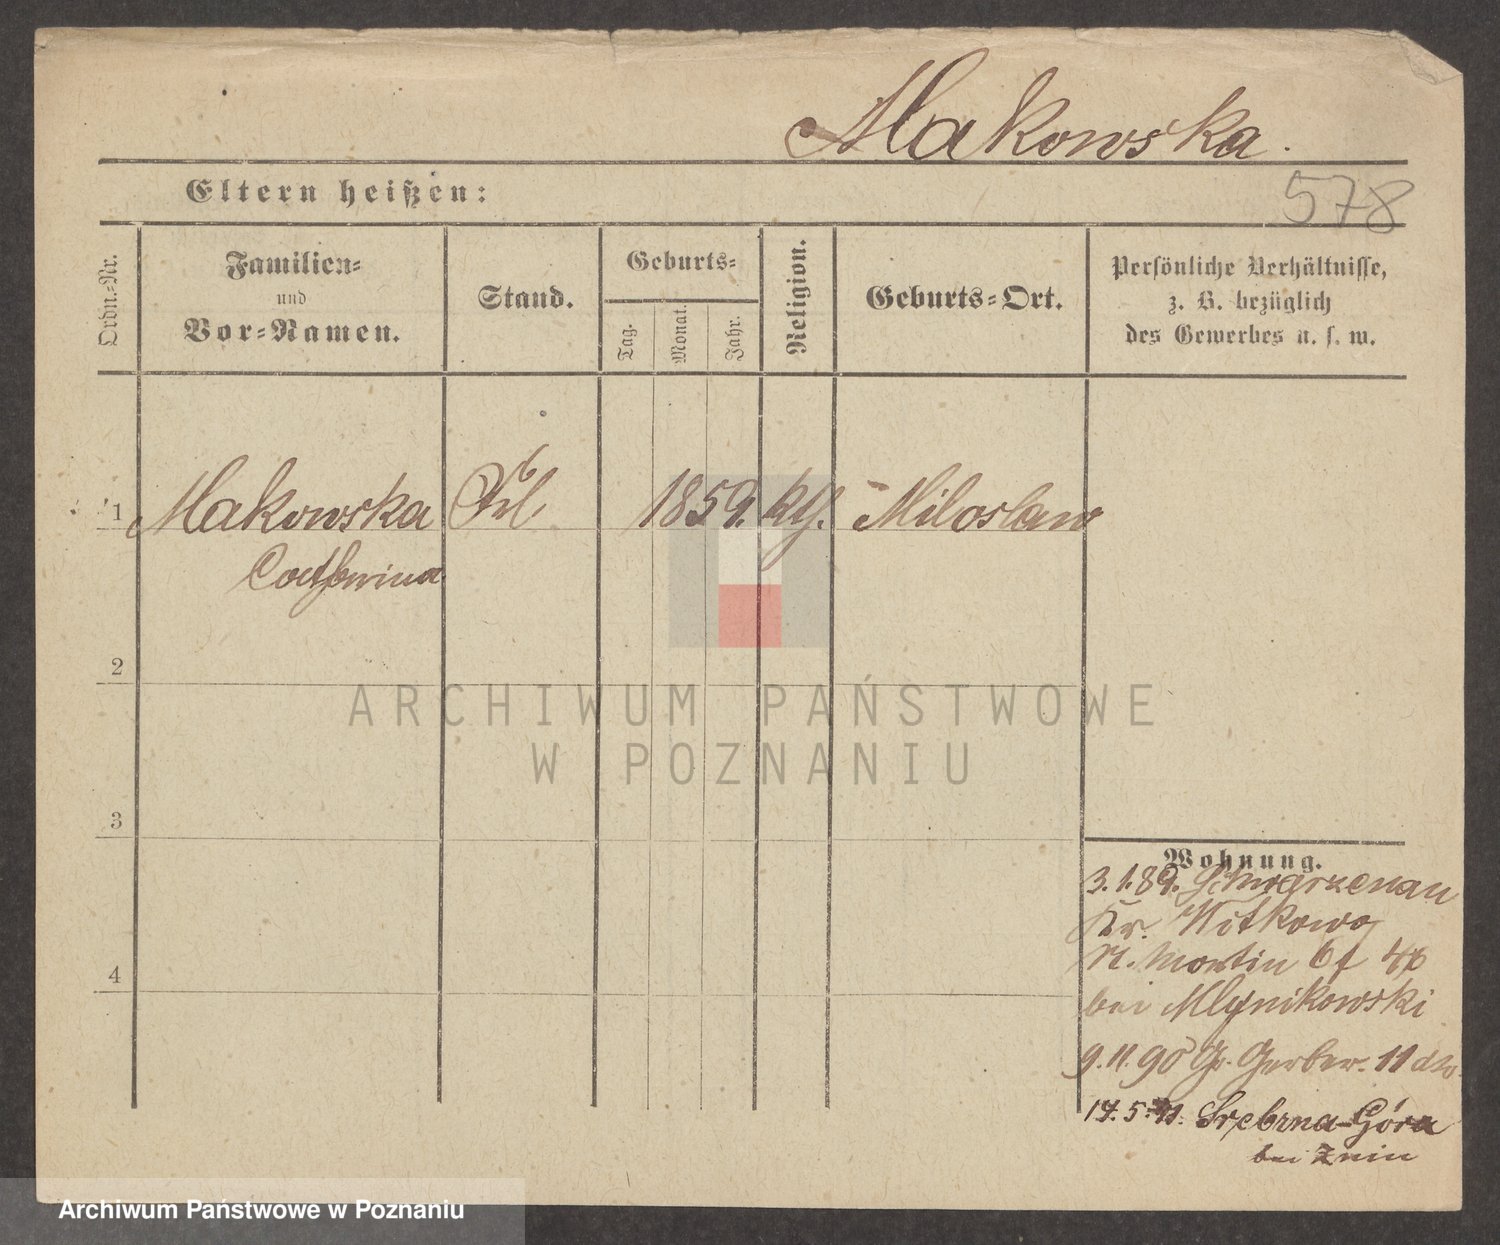 Makowska.
Eltern heißen:
578
Ordn.-Nr.
Familien-
und
Vor-Namen.
Stand.
Geburts-
Tag.
Monat.
Jahr.
Religion.
Geburts-Ort.
Persönliche Verhältnisse,
z. B. bezüglich
des Gewerbes u. s. w.
1 Makowska Frl 1859. kth. Miloslaw
Catherina
2
ARCHIWUM PAŃSTWOWE
W POZNANIU
3
Wohnung.
3.1.89. Schwarzenau
Kr. Witkowo
St. Martin 67
bei Mlynikowski
4
9.11.90 Gr. Gerber. 11
17.5. Srebrna-Góra
bei Znin
Archiwum Państwowe w Poznaniu